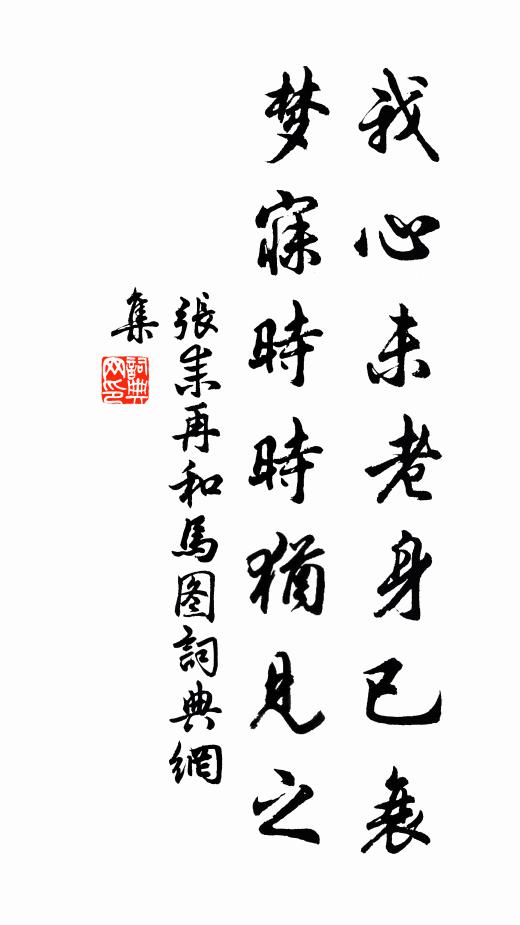 我心未老身已衰
梦寐時時猶見之
張耒再和馬图詞典網
集
詞典网印